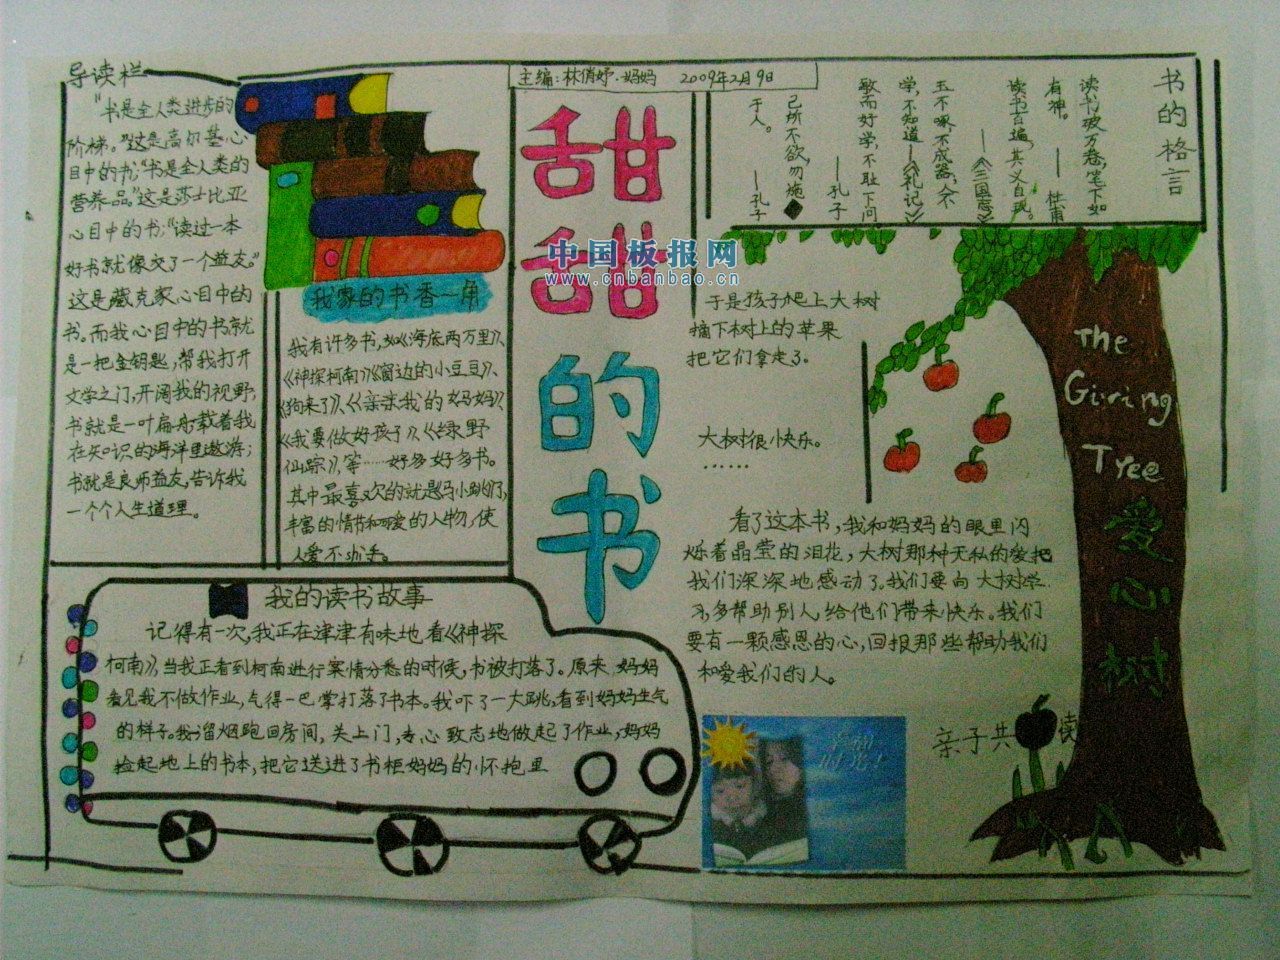 导读栏
"书是全人类进步的
阶梯。"这是高尔基心
目中的书;"书是全人类的
营养品。"这是莎士比亚
心目中的书;"读过一本
好书就像交了一个益友。"
这是藏克家心目中的
书。而我心目中的书就
是一把金钥匙,帮我打开
文学之门,开阔我的视野;
书就是一叶扁舟,载着我
在知识的海洋里遨游;
书就是良师益友,告诉我
一个个人生道理。
我家的书香一角
我有许多书,如《海底两万里》、
《神探柯南》《窗边的小豆豆》、
《狗来了》、《亲亲我的妈妈》、
《我要做好孩子》、《绿野
仙踪》,等……好多好多书。
其中最喜欢的就是《马小跳》们,
丰富的情节和可爱的人物,使
人爱不
主编:林俏妤·妈妈 2009年2月9日
甜甜甜甜的书
书的格言
读书破万卷,笔下如
有神。 ——杜甫
读书百遍,其义自现。
——《三国志》
玉不啄,不成器,人不
学,不知道——《礼记》
敏而好学,不耻下问
——孔子
己所不欲,勿施
于人。 ——孔子
中国板报网
www.cnbanbao.cn
于是孩子爬上大树
摘下树上的苹果
把它们拿走了。
大树很快乐。
……
看了这本书,我和妈妈的眼里闪
烁着晶莹的泪花,大树那种无私的爱把
我们深深地感动了。我们要向大树学
习,多帮助别人,给他们带来快乐。我们
要有一颗感恩的心,回报那些帮助我们
和爱我们的人。
The
Giving
Tree
爱心树
亲子共读
我的读书故事
记得有一次,我正在津津有味地看《神探
柯南》,当我正看到柯南进行案情分悉的时候,书被打落了。原来妈妈
看见我不做作业,气得一巴掌打落了书本。我吓了一大跳,看到妈妈生气
的样子。我一溜烟跑回房间,关上门,专心致志地做起了作业,妈妈
捡起地上的书本,把它送进了书柜妈妈的怀抱里